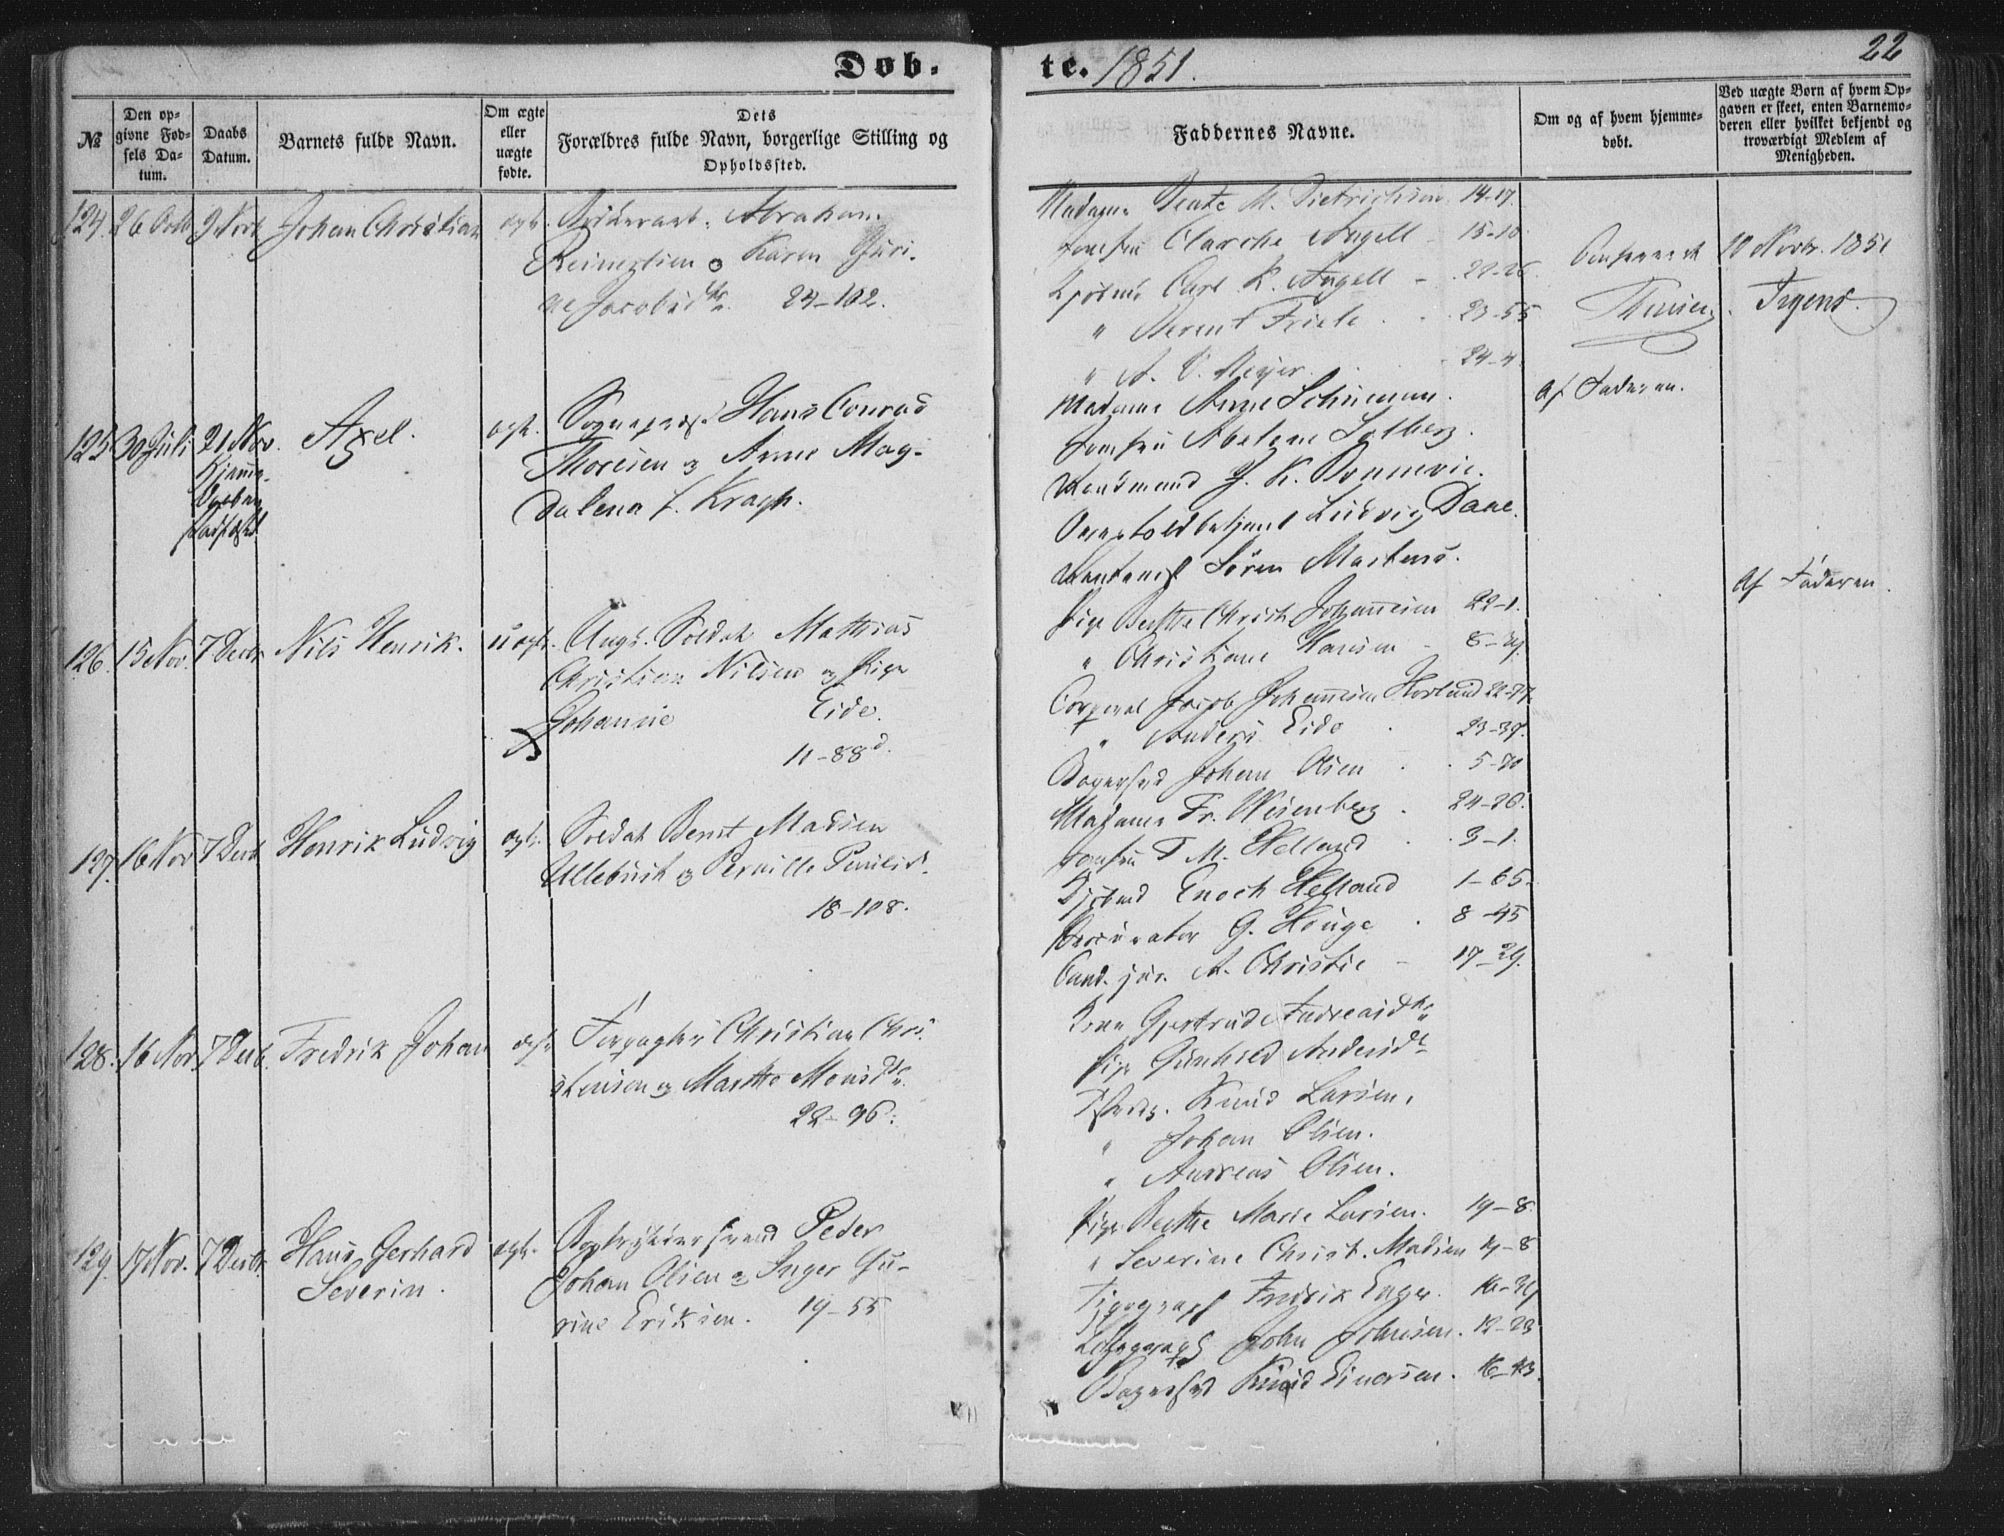 Døb-
te. 1851.
22
№
Den op-
givne Fød-
sels Da-
tum.
Daabs
Datum.
Barnets fulde Navn.
Om ægte
eller
uægte
fødte.
Dets
Forældres fulde Navn, borgerlige Stilling og
Opholdssted.
Faddernes Navne.
Om og af hvem hjemme-
døbt.
Ved uægte Børn af hvem Op-
gaven er skeet, enten Barnemo-
deren eller hvilket bekjendt og
troværdigt Medlem af
Menigheden.
124. 26 Octb 9 Novb Johan Christian ægte. Abraham
Reimertsen og Karen Guri-
ne Jacobsdtr. 24-102.
Madame Beate M. Dietrichson 14-17.
Jomfru Clarche Angell - 15-10.
Kjøbmd Carl K. Angell -
" Berent Friele 23-55
" A. Meyer. 24-4
Confereret 10 Novbr. 1851
Irgens.
125 30 Juli 21 Nov. Axel. ægte. Sognepræst Hans Conrad
Hjemme-
Thoresen og Anne Mag-
dalena f. Kragh.
stadfæstet
Madame Anne Schumann.
Jomfru Abelone Solberg.
J. K.
Overtoldbetjent Ludvig Daae.
Søren Martens.
Af Faderen.
126. 15 Nov. 7 Decbr Nils Henrik. uægte. Ungk. Soldat Mathias
Christian Nilsen og Pige
Johanne Eide.
11-88 d.
Pige Berthe Christ. Johannesen 22-1.
" Christiane Hansen - 8-
Corporal Jacob Johannesen Hovland
" Anders Eide 23-37.
Bagersvd Johan Olsen 5-70
Af Faderen.
127. 16 Nov 7 Decb Henrik Ludvig ægte. Soldat Bernt Madsen
Ullebust og Pernille Paulsd.
18-108.
Madame Fr. Wesenberg. 24-26.
Jomfru T M. Helland 3-1.
Kjøbmd Enoch Helland 1-65.
Procurator G. Hauge 8-45
Cand. jur. A. Christie - 17-29.
128. 16 Nov. 7 Decb. Fredrik Johan ægte Forpagter Christian Chri-
stensen og Marthe Monsdtr.
22-96.
Kone Gjertrud Andreasdtr
Pige Gunhild Andersdtr
Knud Larsen.
" Johan Olsen.
" Andreas Olsen.
129. 17 Nov. 7 Decbr. Hans Gerhard
Severin. ægte. Bogtrykkersvend Peder
Johan Olsen og Inger Gu-
rine Eriksen. 19-55
Pige Berthe Marie Larsen. 19-8
" Severine Christ. Madsen 19-8
Typograph Fredrik Enger.
John Johnsen. 12-23
Bagersvd Knud Einersen. 16-43.